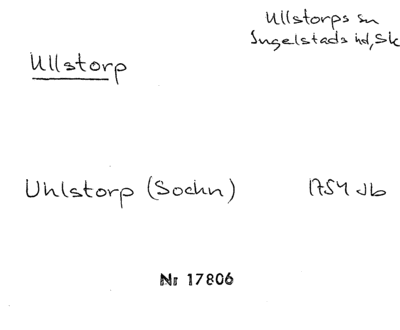 Ullstorps sn
Ingelstads hd, Sk
Ullstorp
Uhlstorp (Sochn) 1754 Jb
Nr 17806